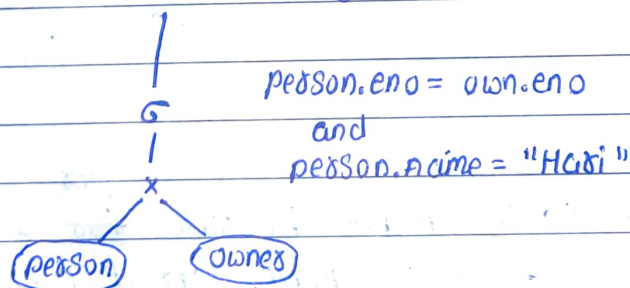 σ person.eno = own.eno
and
person.name = "Hari"
×
person owner